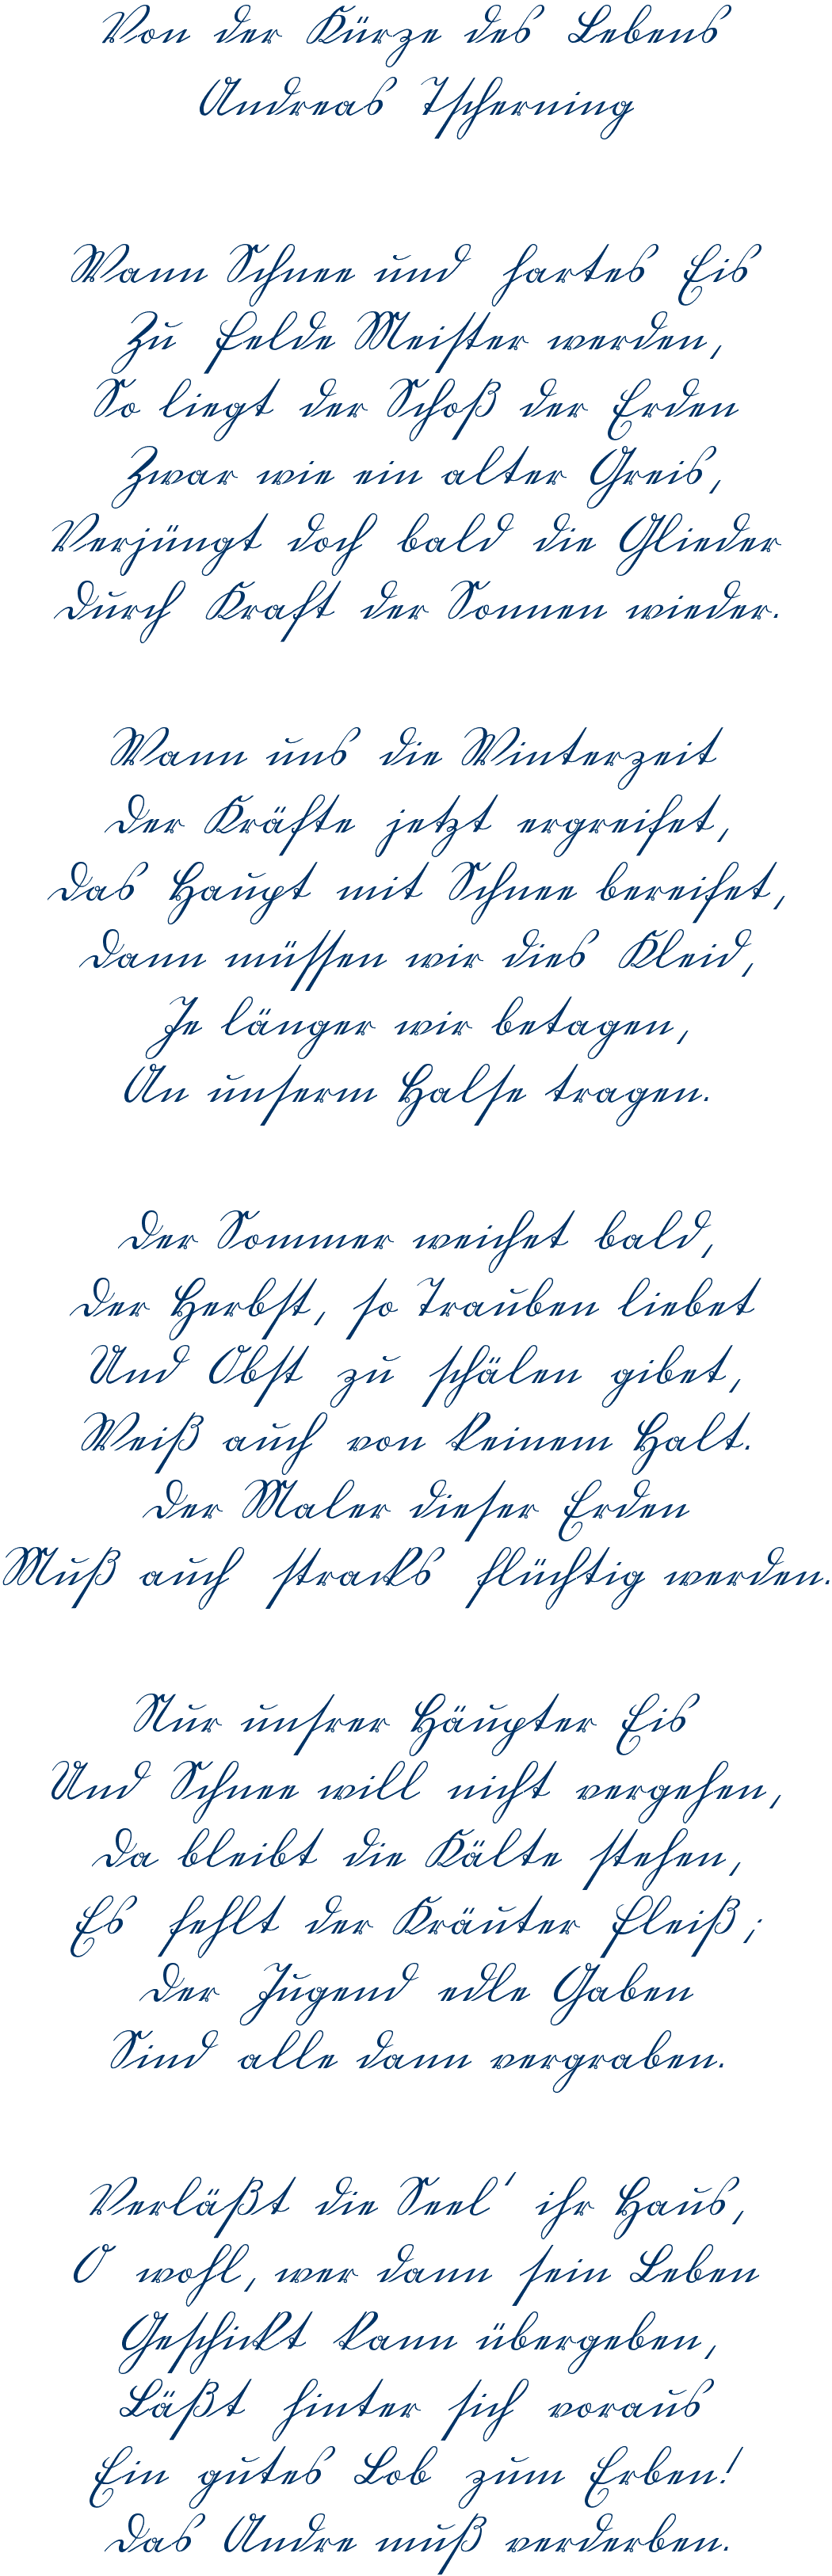 Von der Kürze des Lebens
Andreas Tscherning
Wann Schnee und hartes Eis
Zu Felde Meister werden,
So liegt der Schoß der Erden
Zwar wie ein alter Greis,
Verjüngt doch bald die Glieder
Durch Kraft der Sonnen wieder.
Wann uns die Winterzeit
Der Kräfte jetzt ergreifet,
Das Haupt mit Schnee bereifet,
Dann müssen wir dies Kleid,
Je länger wir betagen,
An unserm Halse tragen.
Der Sommer weichet bald,
Der Herbst, so Trauben liebet
Und Obst zu schälen gibet,
Weiß auch von keinem Halt.
Der Maler dieser Erden
Muß auch stracks flüchtig werden.
Nur unsrer Häupter Eis
Und Schnee will nicht vergehen,
Da bleibt die Kälte stehen,
Es fehlt der Kräuter Fleiß;
Der Jugend edle Gaben
Sind alle dann vergraben.
Verläßt die Seel' ihr Haus,
O wohl, wer dann sein Leben
Geschickt kann übergeben,
Läßt hinter sich voraus
Ein gutes Lob zum Erben!
Das Andre muß verderben.